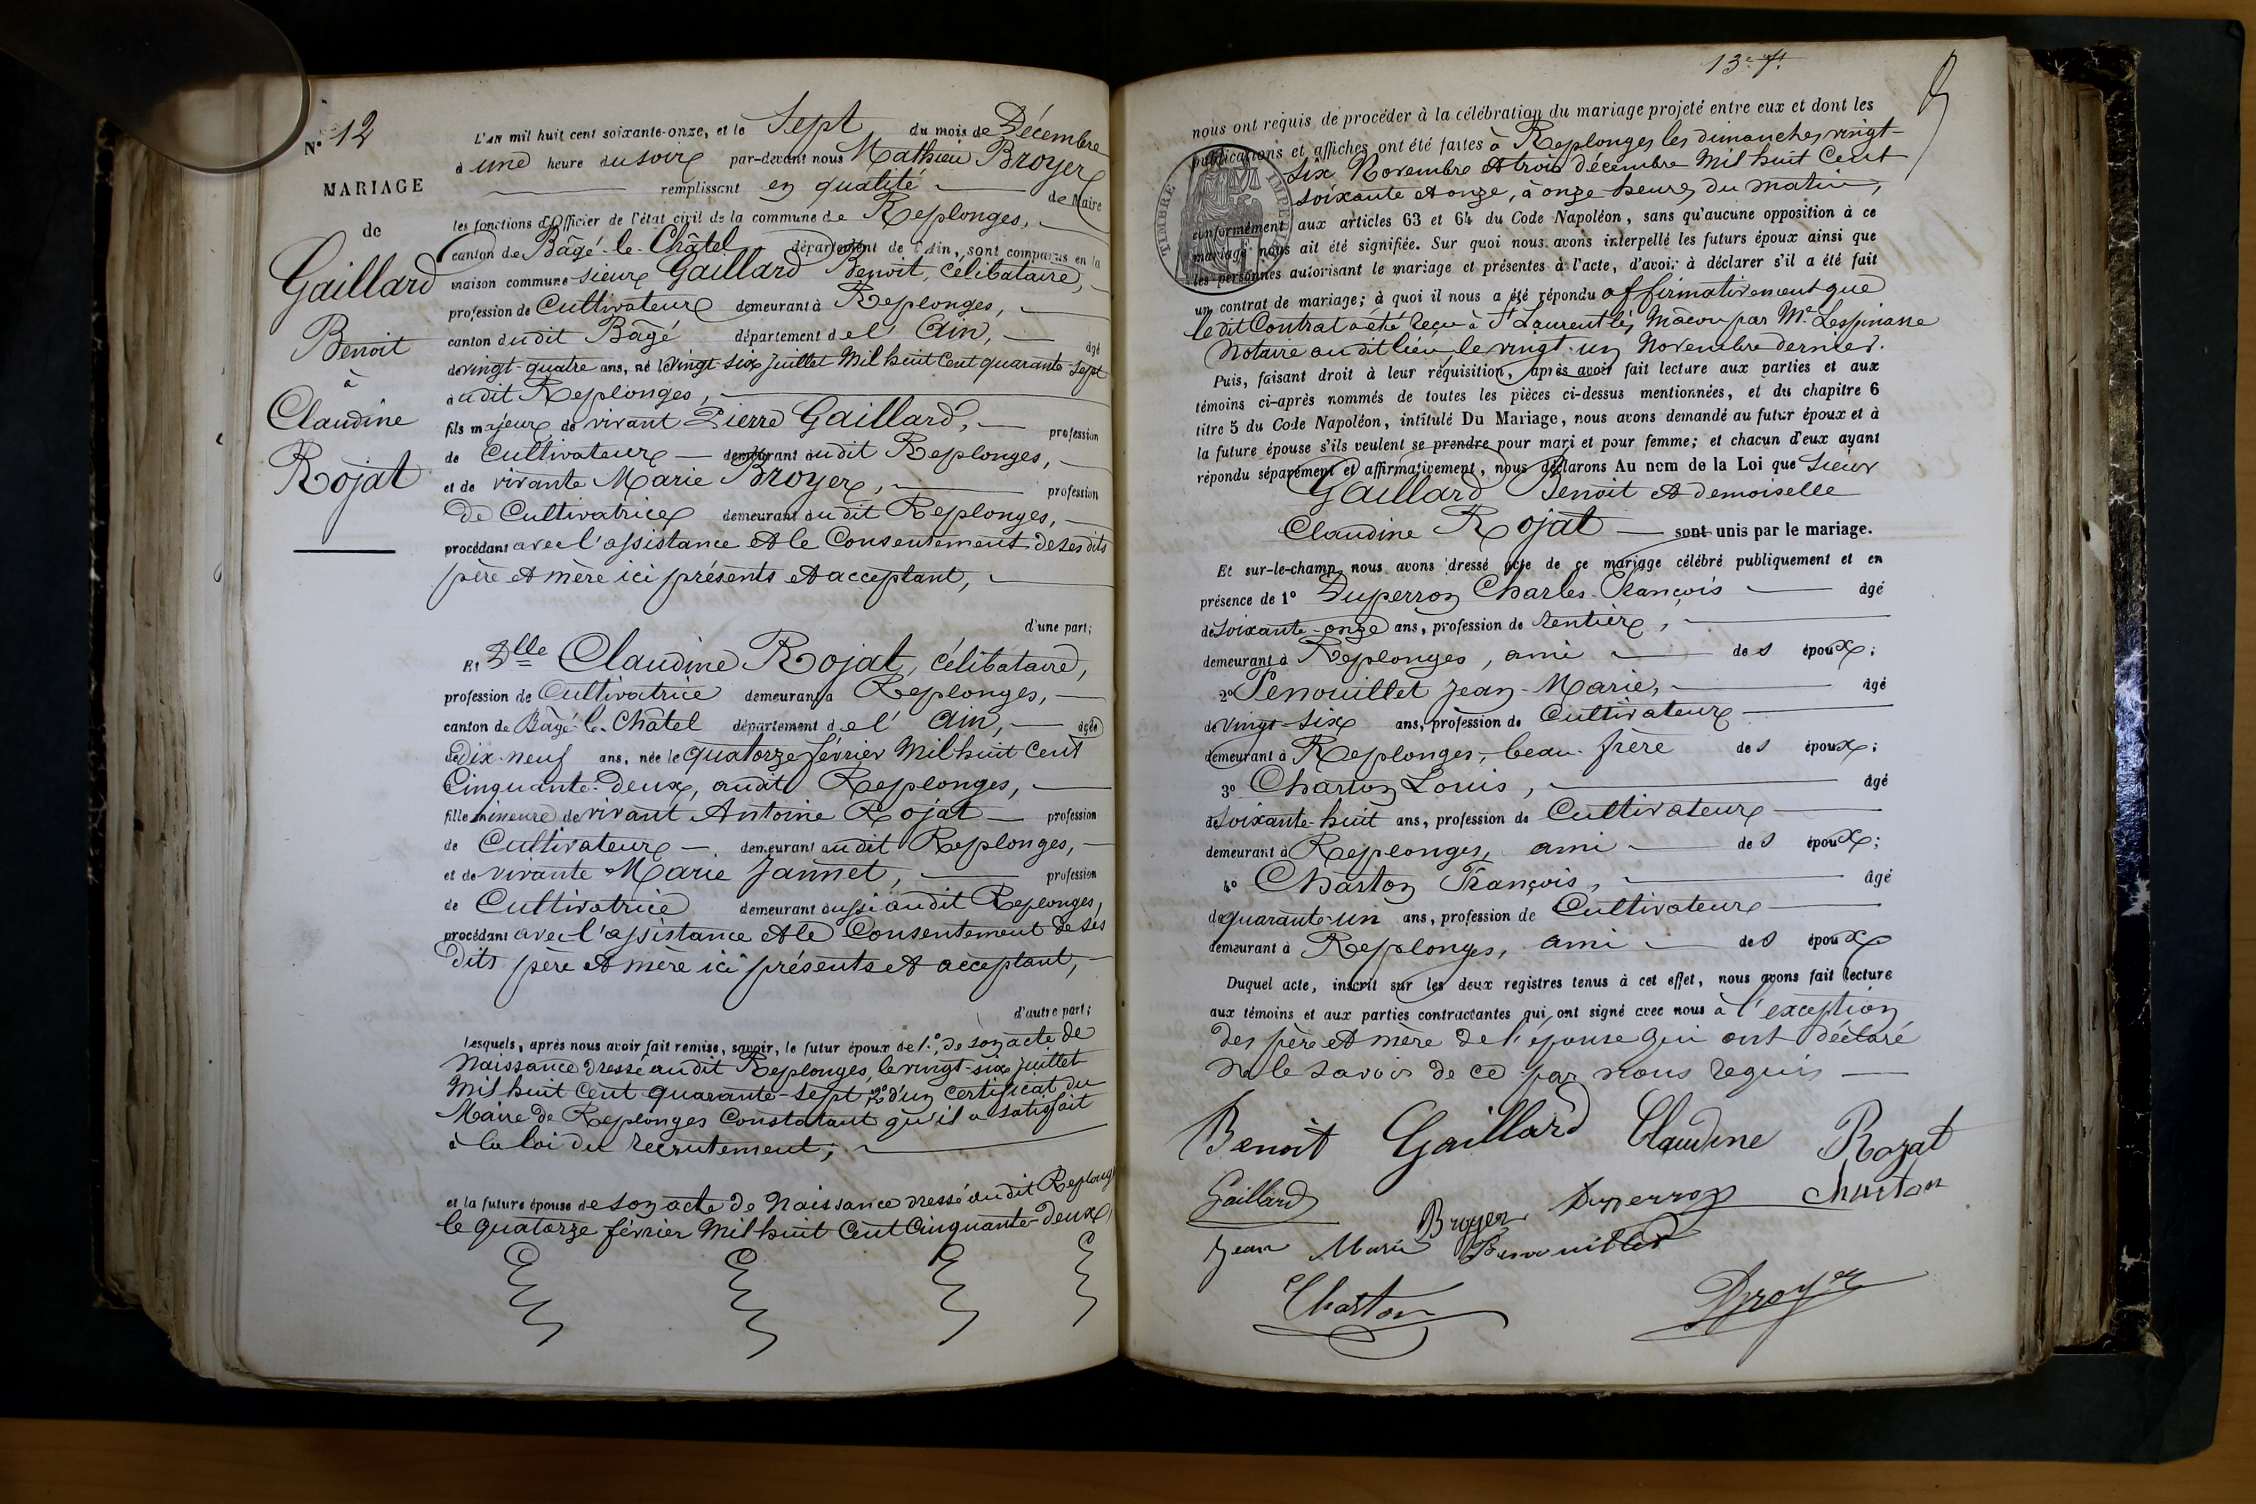 N.° 12
MARIAGE
de
Gaillard
Benoit
à
Claudine
Rojat
L'AN mil huit cent soixante-onze, et le Sept du mois de Décembre
à une heure du soir par-devant nous Mathieu Broyer
remplissant en qualité de Maire
les fonctions d'Officier de l'état civil de la commune de Replonges,
canton de Bâgé-le-Châtel département de l'Ain, sont comparus en la
maison commune sieur Gaillard Benoit, célibataire,
profession de Cultivateur demeurant à Replonges,
canton du dit Bâgé département de l'Ain, âgé
de vingt-quatre ans, né le vingt-six juillet Mil huit Cent quarante-sept
audit Replonges,
fils majeur de vivant Pierre Gaillard, profession
de Cultivateur demeurant audit Replonges,
et de vivante Marie Broyer, profession
De Cultivatrice demeurant audit Replonges,
procédant avec l'assistance et le Consentement de ses dits
père et mère ici présents et acceptant,
d'une part;
Et Dlle Claudine Rojat, célibataire,
profession de Cultivatrice demeurant à Replonges,
canton de Bâgé-le-Châtel département de l'Ain, âgée
de dix-neuf ans, née le quatorze février Mil huit Cent
Cinquante-Deux, audit Replonges,
fille mineure de vivant Antoine Rojat profession
de Cultivateur demeurant audit Replonges,
et de vivante Marie Jannet, profession
de Cultivatrice demeurant aussi audit Replonges,
procédant avec l'assistance et le Consentement de ses
dits père et mère ici présents et acceptant,
d'autre part;
Lesquels, après nous avoir fait remise, savoir, le futur époux de 1.° de son acte de
Naissance dressé audit Replonges, le vingt-six juillet
Mil huit Cent quarante-sept, 2° d'un certificat du
Maire de Replonges Constatant qu'il a satisfait
à la loi du recrutement;
et la future épouse de son acte de Naissance dressé audit Replong
le quatorze février Mil huit Cent Cinquante-Deux,
13e
nous ont requis de procéder à la célébration du mariage projeté entre eux et dont les
publications et affiches ont été faites à Replonges les dimanches vingt-
six Novembre et trois décembre Mil huit Cent
soixante et onze, à onze heures du matin,
TIMBRE IMPE
conformément aux articles 63 et 64 du Code Napoléon, sans qu'aucune opposition à ce
mariage nous ait été signifiée. Sur quoi nous avons interpellé les futurs époux ainsi que
les personnes autorisant le mariage et présentes à l'acte, d'avoir à déclarer s'il a été fait
un contrat de mariage; à quoi il nous a été répondu affirmativement que
le dit Contrat a été reçu à St Laurent lès Mâcon par Me Lespinasse
Notaire audit lieu, le vingt-un Novembre dernier.
Puis, faisant droit à leur réquisition, après avoir fait lecture aux parties et aux
témoins ci-après nommés de toutes les pièces ci-dessus mentionnées, et du chapitre 6
titre 5 du Code Napoléon, intitulé Du Mariage, nous avons demandé au futur époux et à
la future épouse s'ils veulent se prendre pour mari et pour femme; et chacun d'eux ayant
répondu séparément et affirmativement, nous déclarons Au nom de la Loi que Sieur
Gaillard Benoit et demoiselle
Claudine Rojat sont unis par le mariage.
Et sur-le-champ nous avons dressé acte de ce mariage célébré publiquement et en
présence de 1° Duperron Charles-François âgé
de soixante-onze ans, profession de rentier,
demeurant à Replonges, ami des époux;
2° Penouillet Jean-Marie, âgé
de vingt-six ans, profession de Cultivateur
demeurant à Replonges, beau-frère des époux;
3° Charton Louis, âgé
de soixante-huit ans, profession de Cultivateur
demeurant à Replonges, ami des époux;
4° Charton François, âgé
de quarante-un ans, profession de Cultivateur
demeurant à Replonges, ami des époux
Duquel acte, inscrit sur les deux registres tenus à cet effet, nous avons fait lecture
aux témoins et aux parties contractantes qui ont signé avec nous à l'exception
des père et mère de l'épouse qui ont déclaré
ne le savoir de ce par nous requis
Benoit Gaillard Claudine Rozat
Gaillard Broyer Duperron Charton
Jean Marie Penouillet
Charton Broyer